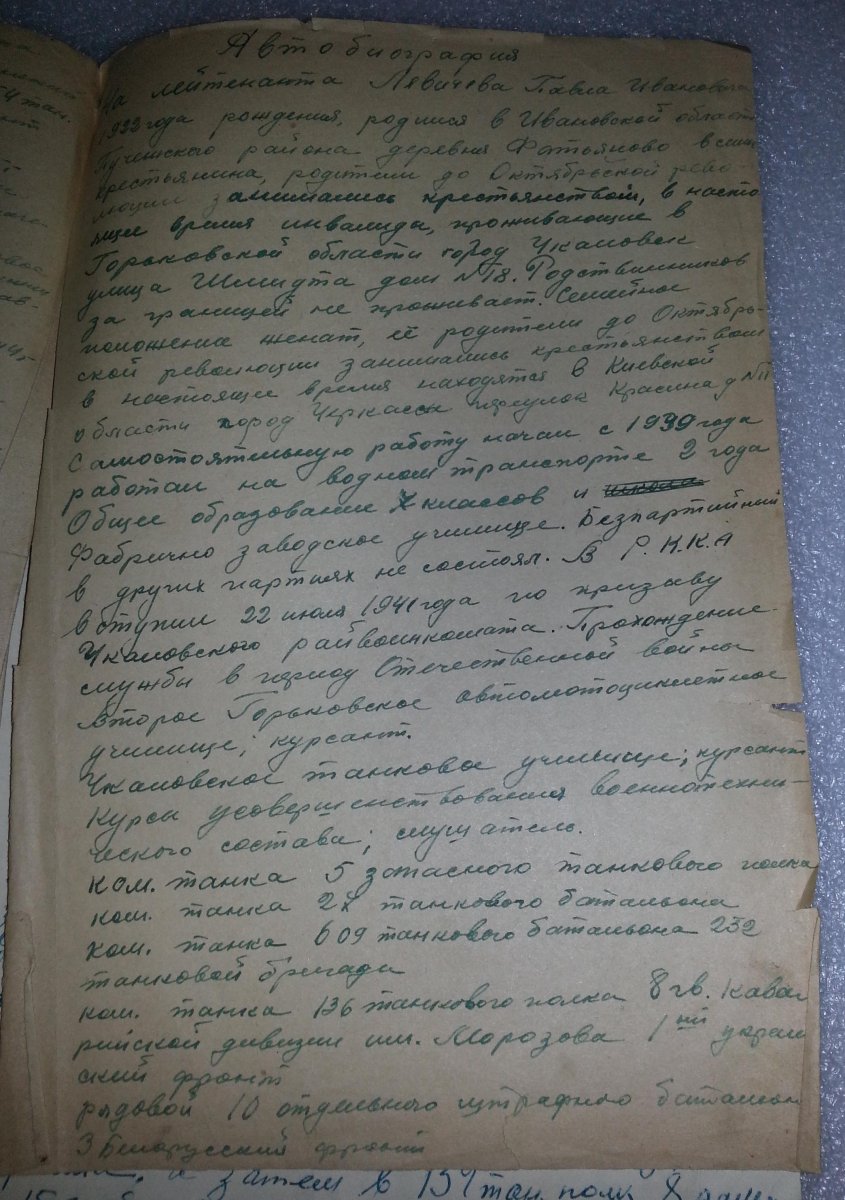 Автобиография
На лейтенанта Лявичева Павла Ивановича
1922 года рождения, родился в Ивановской област
Пучежского района деревня Фатьяново в семи
крестьянина, родители до Октябрьской рево-
люции занимались крестьянством, в насто
ящее время инвалиды, проживающие в
Горьковской области город Чкаловск
улица Шмидта дом №18. Родственников
за границей не проживает. Семейное
положение женат, её родители до Октябрь-
ской революции занимались крестьянством
в настоящее время находятся в Киевской
области город Черкассы переулок Красина д №11
Самостоятельную работу начал с 1939 года
работал на водном транспорте 2 года
Общее образование 7 классов и
Фабрично заводское училище. Безпартийный
в других партиях не состоял. В Р.К.К.А
вступил 22 июля 1941 года по призыву
Чкаловского райвоенкомата. Прохождение
службы в период Отечественной войны
Второе Горьковское автомотоциклетное
училище; курсант.
Чкаловское танковое училище; курсант
Курсы усовершенствования военнотехни-
ческого состава; слушатель.
ком. танка 5 запасного танкового полка
ком. танка 2х танкового батальона
ком. танка 609 танкового батальона 252
танковой бригады
ком. танка 136 танкового полка 8 гв. Кавал
рийской дивизии им. Морозова 1ый украин
ский фронт
рядовой 10 отдельного штрафного батальон
3 Белорусский фронт
а затем в 154 тан. полк 8